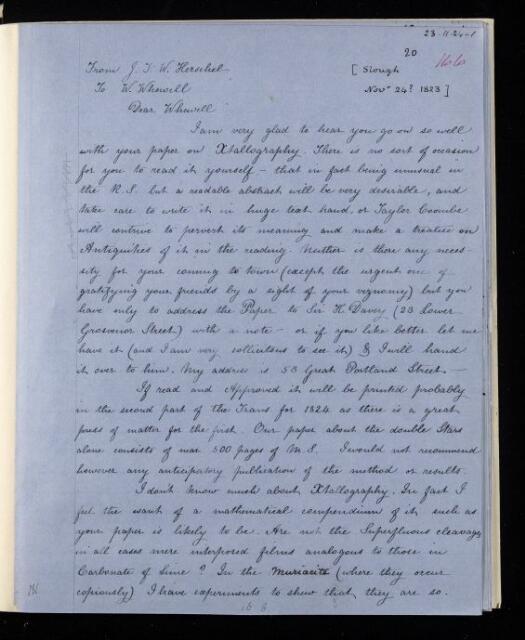 23-11-24-1
20
1660
From J. F. W. Herschel
[Slough
To W. Whewell
Novr 24th 1823]
Dear Whewell
I am very glad to hear you go on so well
with your paper on Xtallography. There is no sort of occasion
for you to read it yourself – that in fact being unusual in
the R.S. but a readable abstract will be very desirable, and
take care to write it in huge text hand, or Taylor Coombe
will contrive to pervert its meaning and make a treatise on
Antiquities of it in the reading. Neither is there any neces-
sity for your coming to town (except the urgent one of
gratifying your friends by a sight of your vignancy) but you
have only to address the Paper to Sir H. Davey (23 Lower
Grosvenor Street) with a note – or if you like better let me
have it (and I am very sollicitous to see it) & I will hand
it over to him. My address is 53 Great Portland Street. —
If read and Approved it will be printed probably
in the second part of the Trans for 1824 as there is a great
press of matter for the first. Our paper about the double Stars
alone consists of near 500 pages of M.S. I would not recommend
however any anticipatory publication of the method or results.
I don't know much about Xtallography. In fact I
feel the want of a mathematical compendium of it such as
your paper is likely to be. Are not the Superfluous cleavages
in all cases mere interposed films analogous to those in
Carbonate of Lime? In the Muriacite (where they occur
copiously) I have experiments to shew that they are so.